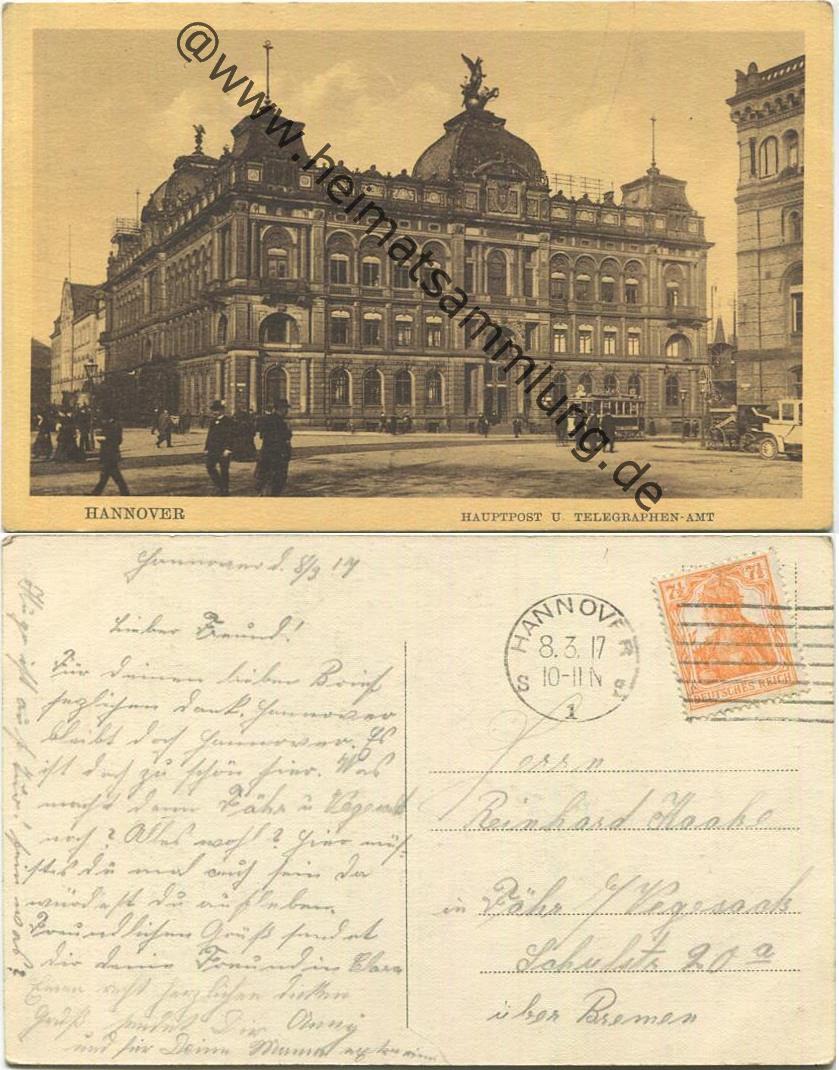 @www.heimatsammlung.de
HANNOVER
HAUPTPOST U. TELEGRAPHEN-AMT
Hannover d. 8/3 17
Lieber Freund!
Für deinen lieben Brief
herzlichen Dank. Hannover
bleibt doch Hannover. Es
ist doch zu schön hier. Was
macht denn Fähr u Vegesack
noch? Alles wohl? Hier müß-
test du mal auch sein da
würdest du aufleben.
Freundlichen Gruß sendet
dir deine Freundin Clara
Einen recht herzlichen dicken
Gruß sendet Dir Anny
und für Deine Mama
Hugo ist auch
HANNOVER
8.3.17
10-11 N
S 1
7½ 7½
DEUTSCHES REICH
Herrn
Reinhard Haake
in Fähr b/Vegesack
Schulstr 20 a
über Bremen